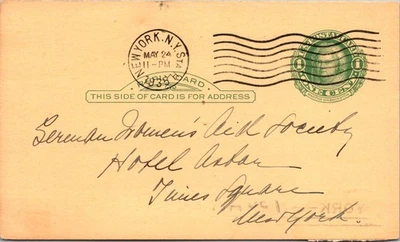 NEW YORK, N.Y. STA.
MAY 24
11-PM
1938
CARD
THIS SIDE OF CARD IS FOR ADDRESS
1 1
German Women's Aid Society
Hotel Astor
Times Square
New York.